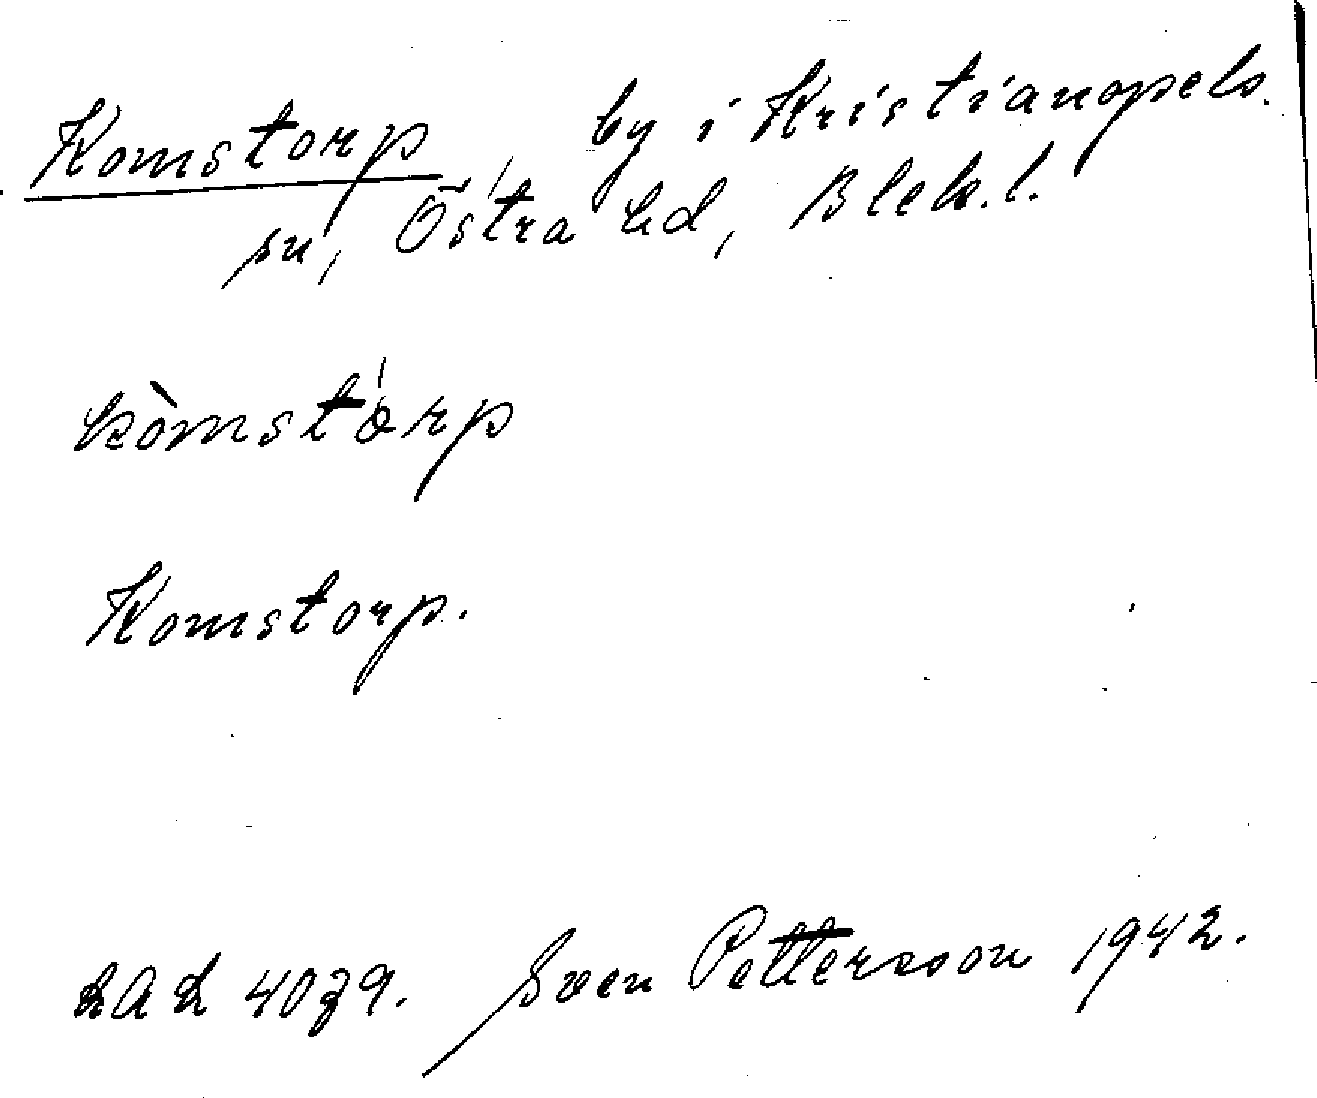 Komstorp, by i Kristianopels.
sn, Östra hd, Blek.l.
kòmstórp
Komstorp.
LAL 4079. Sven Pettersson 1942.